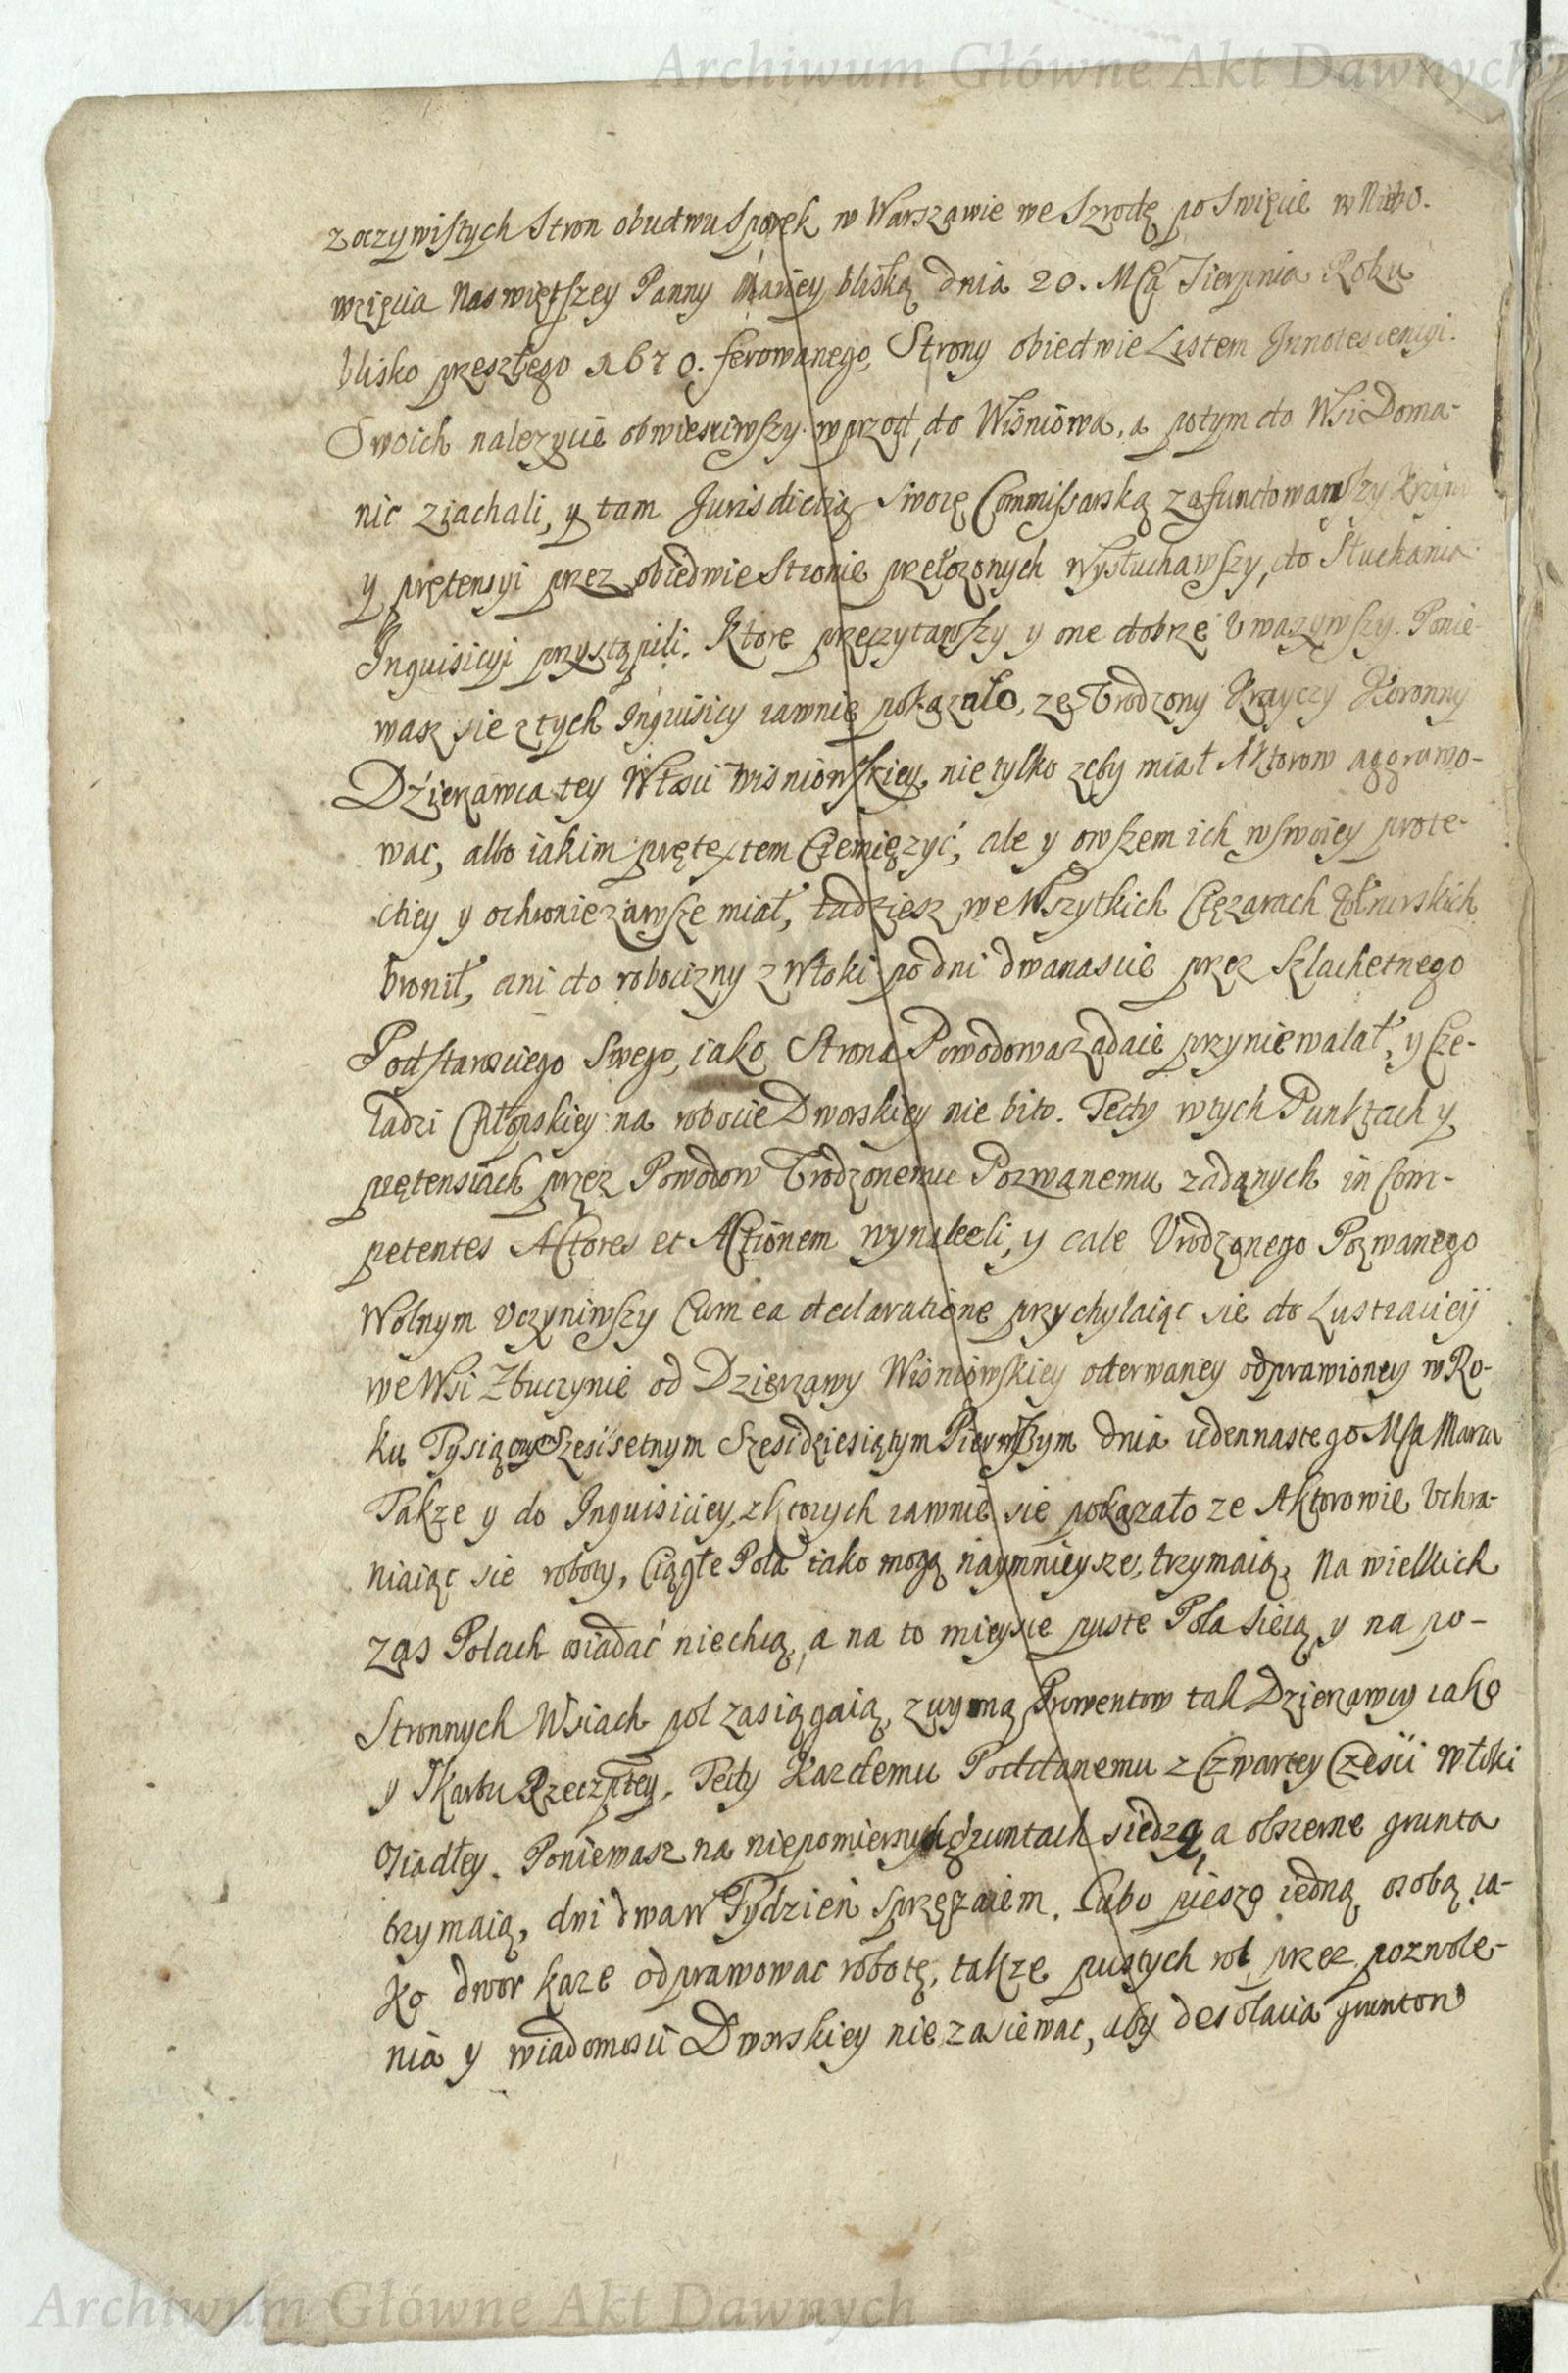 Archiwum Główne Akt Dawnych
zoczywistych Stron obudwu Sporek w Warszawie we Szrodę po Swięcie w Niebo.
wzięcia Naswiętszey Panny Mariey bliską dnia 20. Mca Sierpnia Roku
blisko preszłego 1670. ferowanego, Strony obiedwie Listem Innotescencyi.
Swoich nalezycie obwiesciwszy. wprzod, do Wisniowa, a potym do Wsi Doma-
nic ziachali, y tam Jurisdictią Swoię Commissarską zafundowawszy
y prętensyi prez obiedwie Stronie prełozonych Wysłuchawszy, do Słuchania
Inquisicyi przystąpili. Ktore pręczytawszy y one dobrze Uwazywszy. Ponie-
wasz sie z tych Inquisicy iawnie pokazało, ze Urodzony Krayczy Koronny
Dzierzawca tey Włosci Wisniowskiey, nie tylko zeby miał Aktorow aggrawo-
wac, albo iakim prętextem Ciemięzyć, ale y owszem ich w swoiey prote-
ctiey y ochronie zawsze miał, tudziesz we Wszytkich Cięzarach Zołnirskich
bronił, ani do robocizny z Włoki po dni dwanascie prez Slachetnego
Podstarosciego Swego, iako Strona Powodowa zadaie przyniewalał, y Cze-
ladzi Chłopskiey na robocie Dworskiey nie bito. Tedy w tych Punktach y
prętensiach przez Powodow Urodzonemu Pozwanemu zadanych in Com-
petentes Actores et Actionem wynalezli, y cale Urodzonego Pozwanego
Wolnym Uczyniwszy Cum ea declaratione przychylaiąc sie do Lustraciey
we Wsi Zbuczynie od Dzierzawy Wisniowskiey oderwaney odprawioney w Ro-
ku Tysiącnym Szescsetnym Szescdziesiątym Pierwszym dnia iedennastego Msca Marca
Takze y do Inquisiciey, z ktorych iawnie sie pokazało ze Aktorowie Uchra-
niaiąc sie roboty, Ciągłe Pola iako mogą naymnieysze, trzymaią, Na wielkich
zas Polach osiadać niechcą, a na to mieysce puste Pola sieią y na po-
Stronnych Wsiach pol zasiągaią, z uymą Prowentow tak Dzierzawcy iako
y Skarbu Rzeczptey. Tedy Kazdemu Poddanemu z Czwartey Części Włoki
Osiadłey. Poniewasz na niepomiernych gruntach siedzą, a obszerne grunta
trzymaią, dni dwa w Tydzień Sprzęzaiem. Lubo pieszo iedną osobą ia-
ko dwor kaze odprawowac robotę, takze pustych rol prez pozwole-
nia y wiadomosci Dworskiey nie zasiewac, aby desolacia gruntow
Archiwum Główne Akt Dawnych